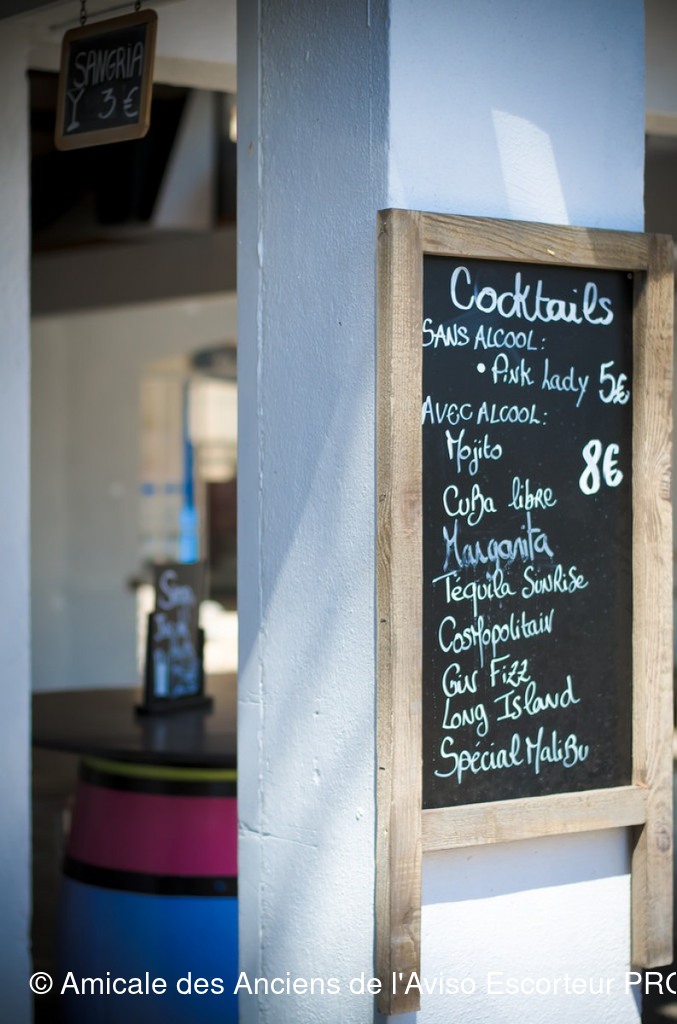 SANGRIA
3€
Cocktails
SANS ALCOOL:
• Pink Lady 5€
AVEC ALCOOL:
Mojito
8€
CUBA libre
Margarita
Téquila SUNRISE
Cosmopolitain
Gin Fizz
Long Island
Spécial MALiBu
© Amicale des Anciens de l'Aviso Escorteur PRO